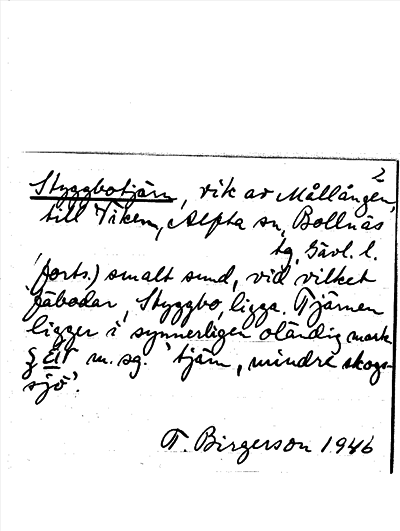 2
Styggbotjärn, vik av Mållången,
till Viken, Alfta sn, Bollnäs
tg, Gävl. l.
(forts.) smalt sund, vid vilket
fäbodar, Styggbo, ligga. Tjärnen
ligger i synnerligen oländig mark
m. sg. "tjärn, mindre skogs-
sjö".
T. Birgerson 1946